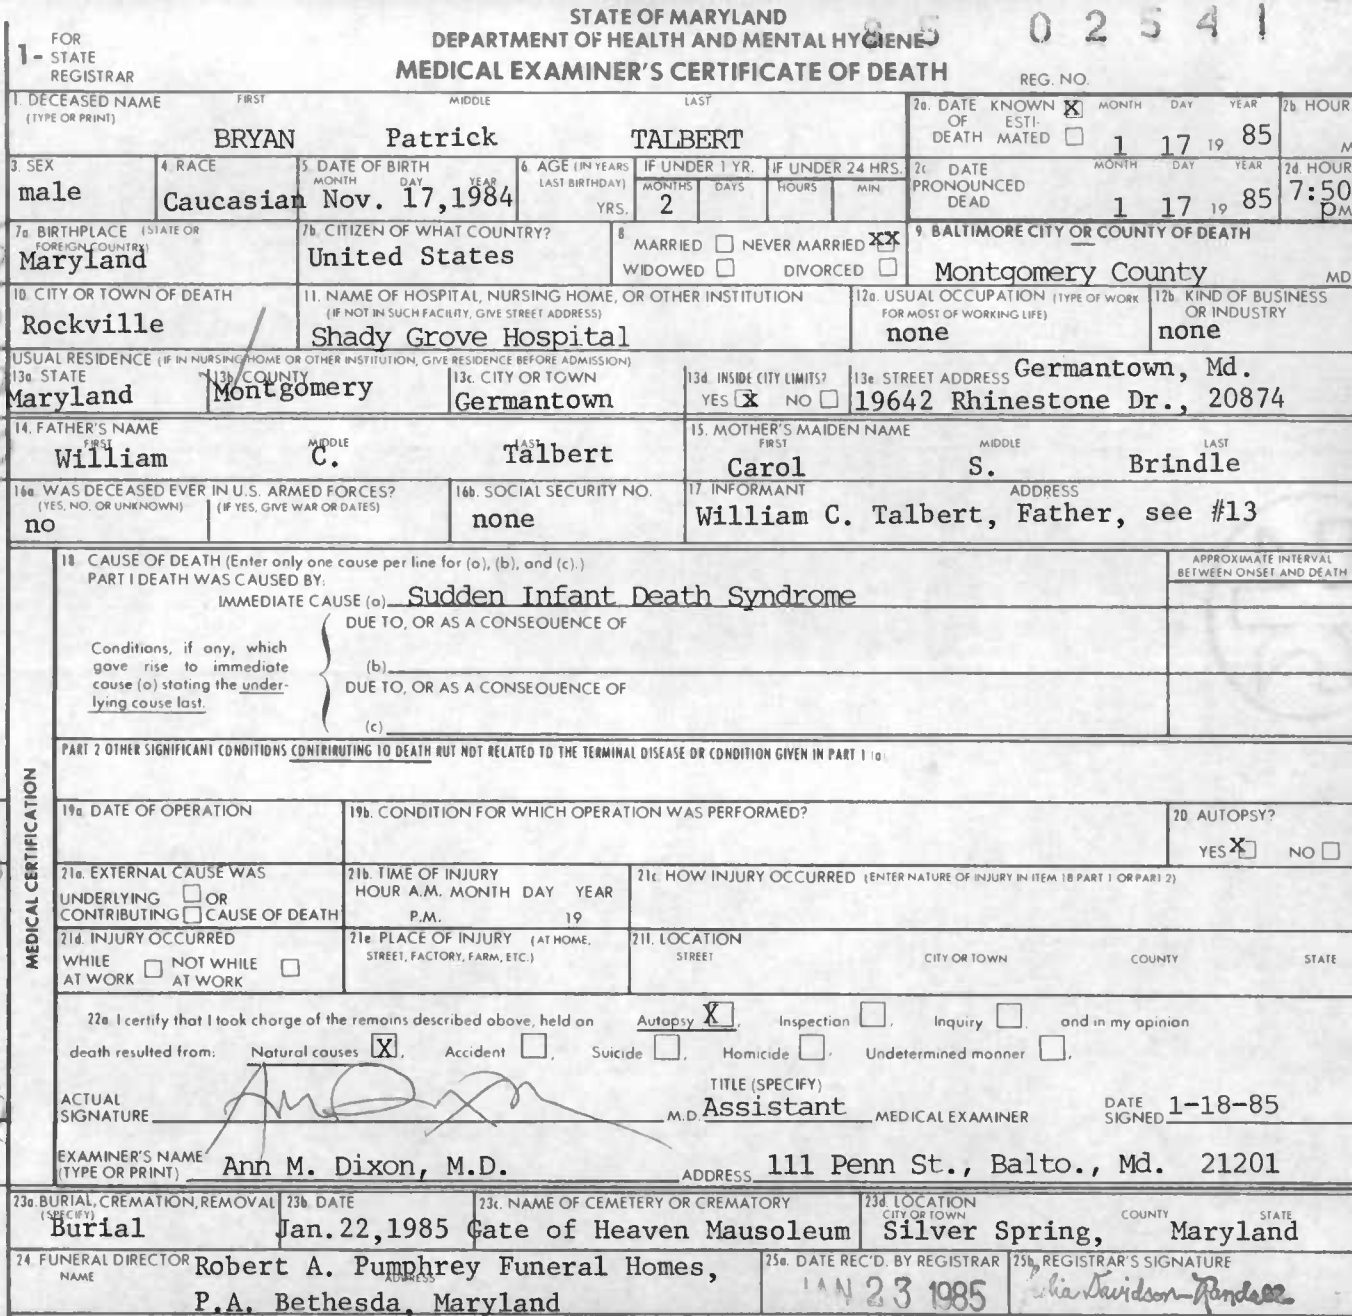 STATE OF MARYLAND
DEPARTMENT OF HEALTH AND MENTAL HYGIENE
MEDICAL EXAMINER'S CERTIFICATE OF DEATH
1- FOR STATE REGISTRAR
85 02541
REG. NO.
1. DECEASED NAME (TYPE OR PRINT) FIRST MIDDLE LAST
BRYAN Patrick TALBERT
2a. DATE OF DEATH KNOWN X ESTIMATED MONTH DAY YEAR 2b HOUR
1 17 19 85 M
3. SEX 4. RACE 5. DATE OF BIRTH MONTH DAY YEAR 6. AGE (IN YEARS LAST BIRTHDAY) YRS. IF UNDER 1 YR. MONTHS DAYS IF UNDER 24 HRS. HOURS MIN.
male Caucasian Nov. 17,1984 2
2c. DATE PRONOUNCED DEAD MONTH DAY YEAR 2d. HOUR
1 17 19 85 7:50 PM
7a. BIRTHPLACE (STATE OR FOREIGN COUNTRY)
Maryland
7b. CITIZEN OF WHAT COUNTRY?
United States
8 MARRIED NEVER MARRIED XX
WIDOWED DIVORCED
9. BALTIMORE CITY OR COUNTY OF DEATH
Montgomery County MD
10. CITY OR TOWN OF DEATH
Rockville
11. NAME OF HOSPITAL, NURSING HOME, OR OTHER INSTITUTION
(IF NOT IN SUCH FACILITY, GIVE STREET ADDRESS)
Shady Grove Hospital
12a. USUAL OCCUPATION (TYPE OF WORK FOR MOST OF WORKING LIFE)
none
12b. KIND OF BUSINESS OR INDUSTRY
none
USUAL RESIDENCE (IF IN NURSING HOME OR OTHER INSTITUTION, GIVE RESIDENCE BEFORE ADMISSION)
13a. STATE
Maryland
13b. COUNTY
Montgomery
13c. CITY OR TOWN
Germantown
13d. INSIDE CITY LIMITS?
YES X NO
13e. STREET ADDRESS Germantown, Md.
19642 Rhinestone Dr., 20874
14. FATHER'S NAME FIRST MIDDLE LAST
William C. Talbert
15. MOTHER'S MAIDEN NAME FIRST MIDDLE LAST
Carol S. Brindle
16a. WAS DECEASED EVER IN U.S. ARMED FORCES?
(YES, NO, OR UNKNOWN) (IF YES, GIVE WAR OR DATES)
no
16b. SOCIAL SECURITY NO.
none
17. INFORMANT ADDRESS
William C. Talbert, Father, see #13
MEDICAL CERTIFICATION
18 CAUSE OF DEATH (Enter only one cause per line for (a), (b), and (c).)
PART I DEATH WAS CAUSED BY:
IMMEDIATE CAUSE (a) Sudden Infant Death Syndrome
APPROXIMATE INTERVAL BETWEEN ONSET AND DEATH
DUE TO, OR AS A CONSEQUENCE OF
Conditions, if any, which gave rise to immediate cause (a) stating the underlying cause last.
(b)
DUE TO, OR AS A CONSEQUENCE OF
(c)
PART 2 OTHER SIGNIFICANT CONDITIONS CONTRIBUTING TO DEATH BUT NOT RELATED TO THE TERMINAL DISEASE OR CONDITION GIVEN IN PART 1 (a)
19a. DATE OF OPERATION
19b. CONDITION FOR WHICH OPERATION WAS PERFORMED?
20 AUTOPSY?
YES X NO
21a. EXTERNAL CAUSE WAS
UNDERLYING OR
CONTRIBUTING CAUSE OF DEATH
21b. TIME OF INJURY
HOUR A.M. MONTH DAY YEAR
P.M. 19
21c. HOW INJURY OCCURRED (ENTER NATURE OF INJURY IN ITEM 18 PART 1 OR PART 2)
21d. INJURY OCCURRED
WHILE AT WORK NOT WHILE AT WORK
21e PLACE OF INJURY (AT HOME, STREET, FACTORY, FARM, ETC.)
21f. LOCATION
STREET CITY OR TOWN COUNTY STATE
22a I certify that I took charge of the remains described above, held an Autopsy X, Inspection, Inquiry, and in my opinion
death resulted from: Natural causes X, Accident, Suicide, Homicide, Undetermined manner.
ACTUAL SIGNATURE M.D. TITLE (SPECIFY) Assistant MEDICAL EXAMINER DATE SIGNED 1-18-85
EXAMINER'S NAME (TYPE OR PRINT) Ann M. Dixon, M.D. ADDRESS 111 Penn St., Balto., Md. 21201
23a. BURIAL, CREMATION, REMOVAL (SPECIFY)
Burial
23b. DATE
Jan.22,1985
23c. NAME OF CEMETERY OR CREMATORY
Gate of Heaven Mausoleum
23d. LOCATION CITY OR TOWN COUNTY STATE
Silver Spring, Maryland
24. FUNERAL DIRECTOR NAME ADDRESS
Robert A. Pumphrey Funeral Homes,
P.A. Bethesda, Maryland
25a. DATE REC'D. BY REGISTRAR
JAN 23 1985
25b. REGISTRAR'S SIGNATURE
Davidson-Randall